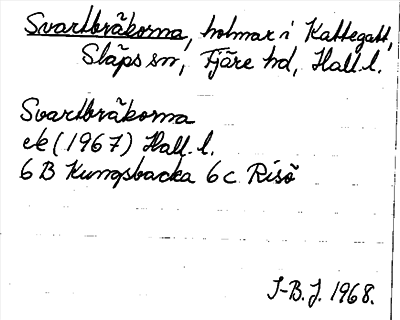 Svartbråkorna, holmar i Kattegatt,
Släps sn, Fjäre hd, Hall.l.
Svartbråkorna
ek (1967) Hall.l.
6 B Kungsbacka 6 c Risö
I-B.J. 1968.